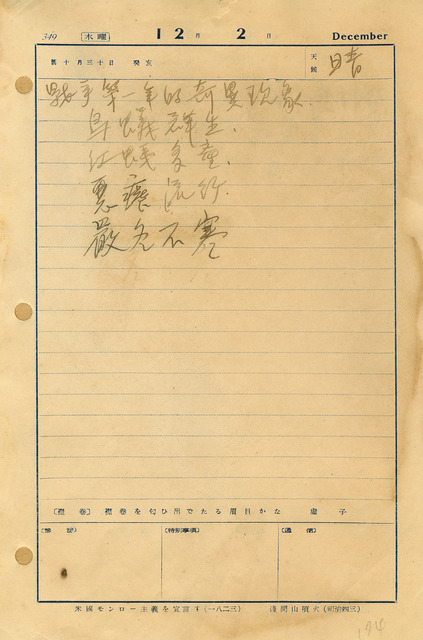 349 木曜 12月2日 December
舊十月三十日 癸亥
天候 晴
戰爭第一年的奇異現象.
烏蟻群生.
紅蟻多產.
惡瘧流行.
嚴冬不寒
〔襟卷〕 襟卷を匂ひ出でたる眉目かな 虛子
(發信) (特別事項) (受信)
米國モンロー主義を宣言す(一八二三) 淺間山噴火(明治四三)
174